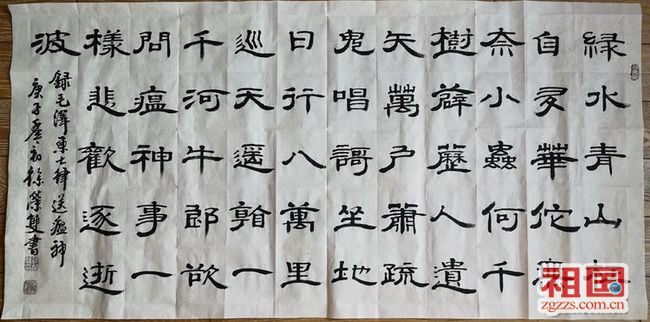 緑水青山
自多華佗無
奈小蟲何千
樹薜藶人遺
矢萬戶蕭疏
鬼唱謌坐地
日行八萬里
巡天遥翰一
千河牛郎欲
問瘟神事一
樣悲歡逐逝
波
録毛澤東七律送瘟神
庚子夏初徐榮雙書
祖国
zgzzs.com.cn